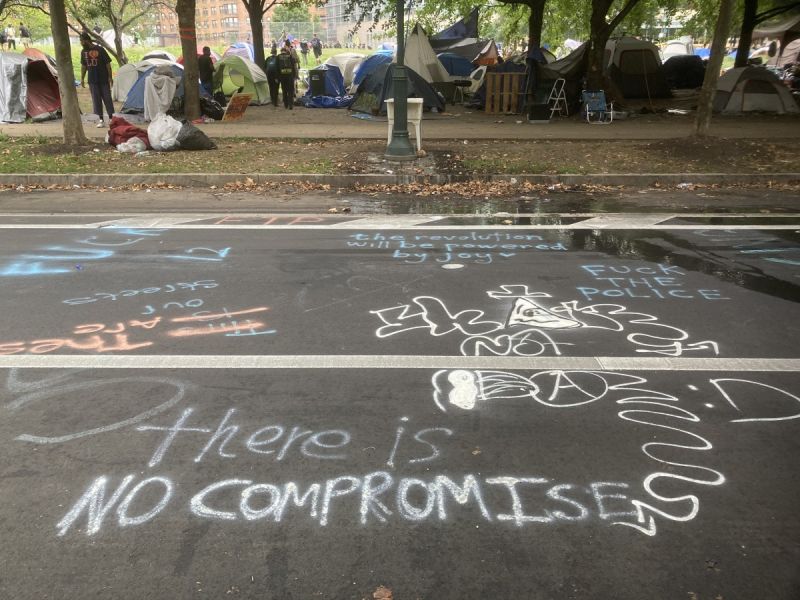 FTP
the revolution
will be powered
by joy
FUCK
THE
POLICE
streets
our
These
Are
There is
NO COMPROMISE
A
:D